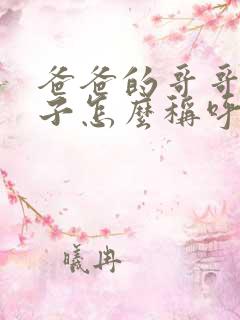 爸爸的哥哥
子怎麼稱呼
曦冉